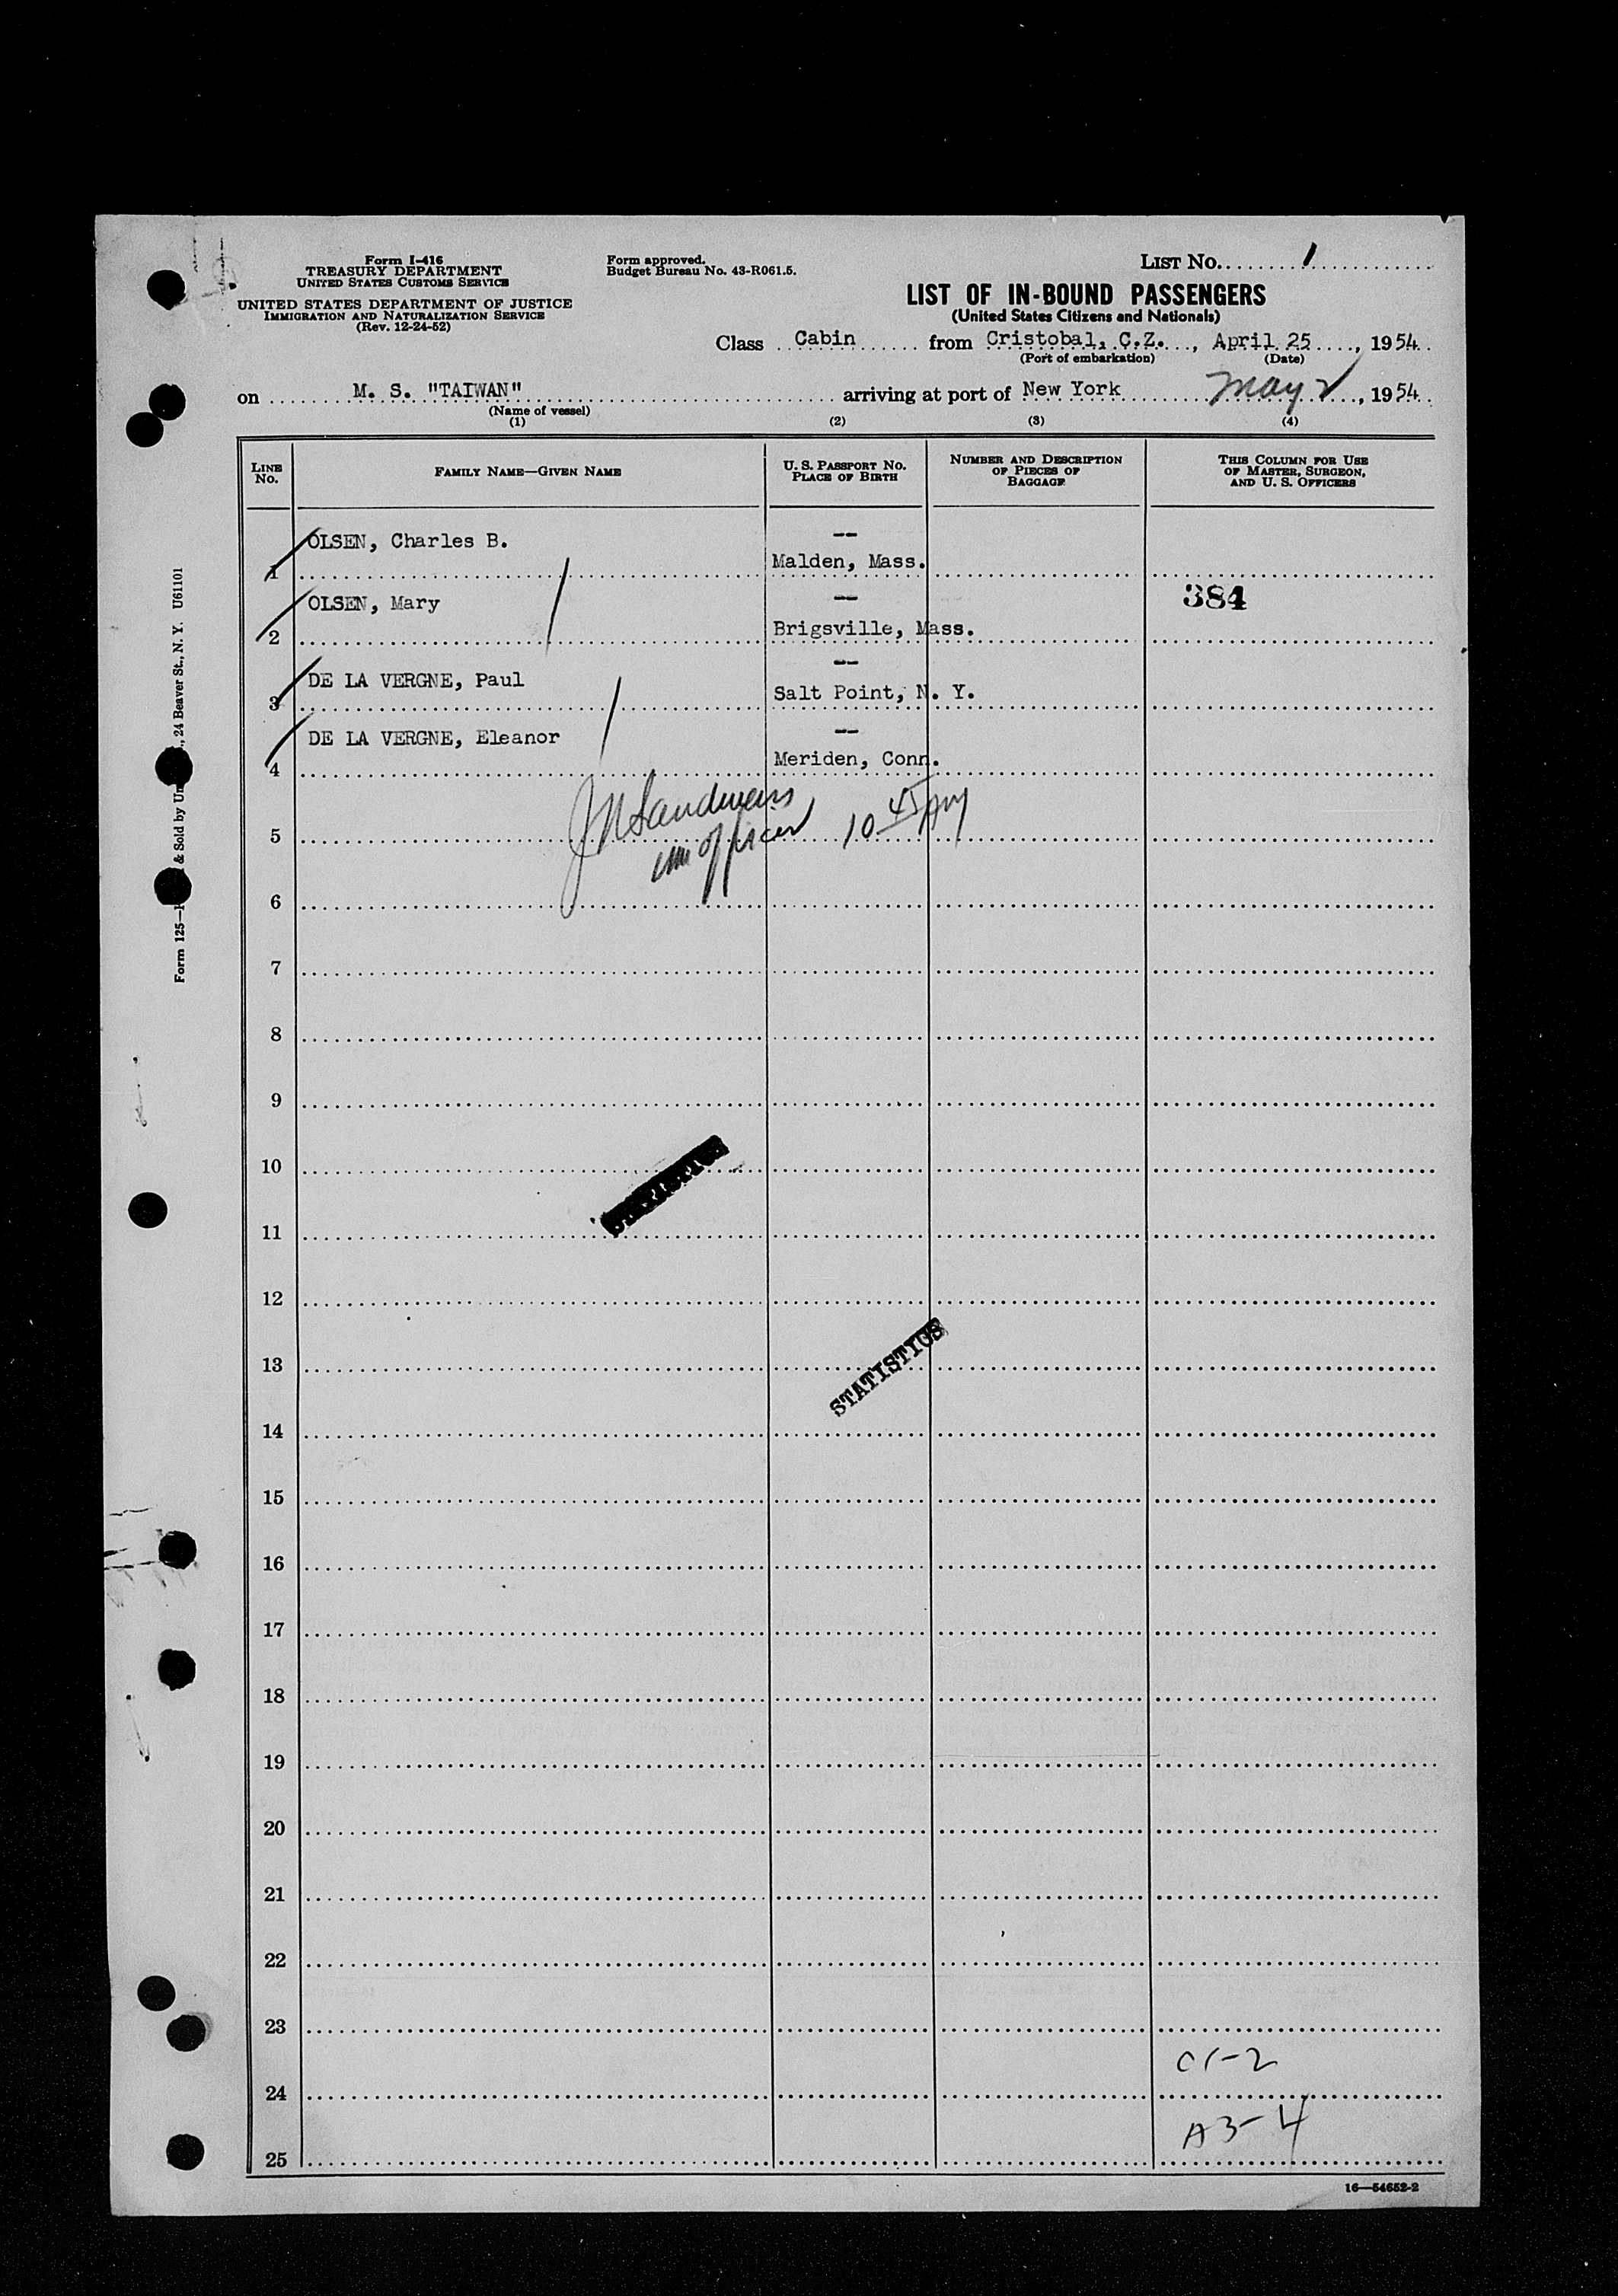 Form I-416
TREASURY DEPARTMENT
UNITED STATES CUSTOMS SERVICE
UNITED STATES DEPARTMENT OF JUSTICE
IMMIGRATION AND NATURALIZATION SERVICE
(Rev. 12-24-52)
Form approved.
Budget Bureau No. 43-R061.5.
LIST No. 1
LIST OF IN-BOUND PASSENGERS
(United States Citizens and Nationals)
Class Cabin from Cristobal, C.Z., April 25, 1954
(Port of embarkation) (Date)
on M. S. "TAIWAN" arriving at port of New York May 2, 1954
(Name of vessel)
(1) (2) (3) (4)
LINE No.
FAMILY NAME—GIVEN NAME
U. S. PASSPORT NO.
PLACE OF BIRTH
NUMBER AND DESCRIPTION
OF PIECES OF
BAGGAGE
THIS COLUMN FOR USE
OF MASTER, SURGEON,
AND U. S. OFFICERS
OLSEN, Charles B. --
1 Malden, Mass.
OLSEN, Mary -- 384
2 Brigsville, Mass.
--
DE LA VERGNE, Paul
3 Salt Point, N. Y.
DE LA VERGNE, Eleanor --
4 Meriden, Conn.
5 10 45 AM
officer
6
7
8
9
10
STATISTICS
11
12
13
STATISTICS
14
15
16
17
18
19
20
21
22
23
24
A3-4
25
16—54652-2
Form 125— & Sold by , 24 Beaver St., N. Y. U61101